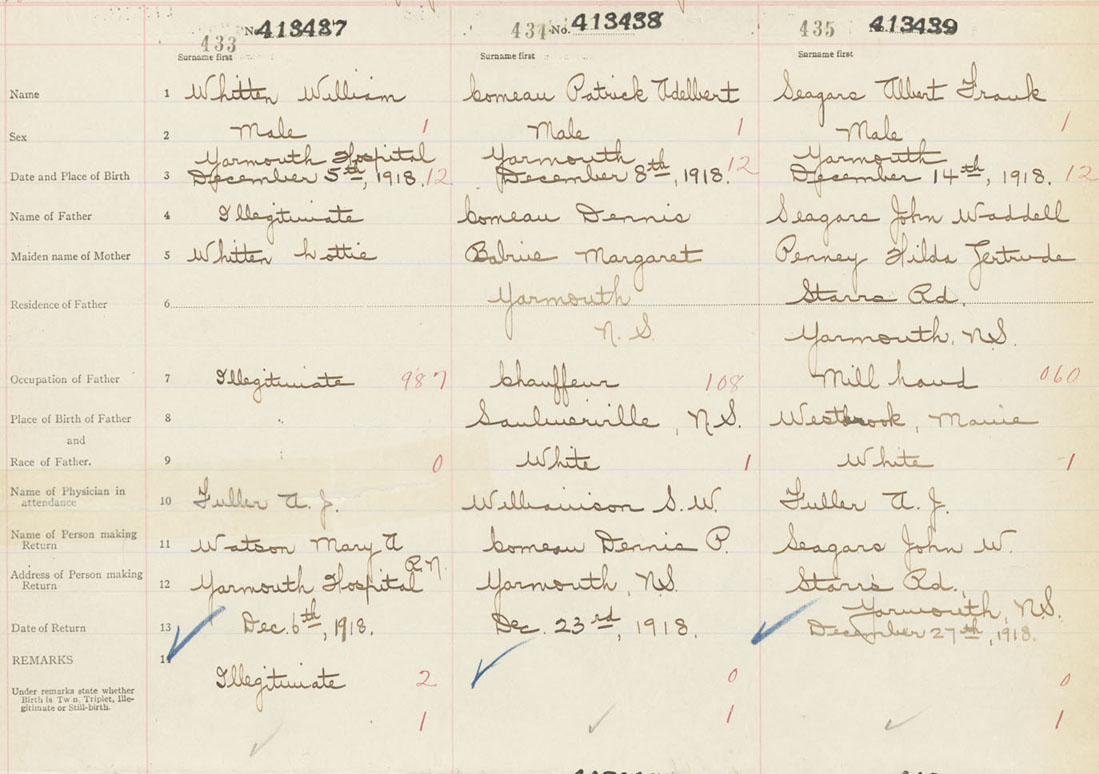 433 No. 413487 434 No. 413438 435 No. 413439
Surname first Surname first Surname first
Name 1 Whitten William Comeau Patrick Adelbert Seagars Albert Frank
Sex 2 Male 1 Male 1 Male 1
Yarmouth Hospital Yarmouth Yarmouth
Date and Place of Birth 3 December 5th, 1918. 12 December 8th, 1918. 12 December 14th, 1918. 12
Name of Father 4 Illegitimate Comeau Dennis Seagars John Waddell
Maiden name of Mother 5 Whitten Lottie Babine Margaret Penney Hilda Gertrude
Residence of Father 6 Yarmouth Starrs Rd.
N. S. Yarmouth, N.S.
Occupation of Father 7 Illegitimate 987 Chauffeur 108 Mill hand 060
Place of Birth of Father 8 Saulnierville, N.S. Westbrook, Maine
and
Race of Father. 9 0 White 1 White 1
Name of Physician in
attendance 10 Fuller A. J. Williamson S. W. Fuller A. J.
Name of Person making
Return 11 Watson Mary A R.N. Comeau Dennis P. Seagars John W.
Address of Person making
Return 12 Yarmouth Hospital Yarmouth, N.S. Starrs Rd.,
Yarmouth, N.S.
Date of Return 13 Dec. 6th, 1918. Dec. 23rd, 1918. December 27th, 1918.
REMARKS 1
Illegitimate 2 0 0
Under remarks state whether
Birth is Twin, Triplet, Ille-
gitimate or Still-birth.
1 1 1